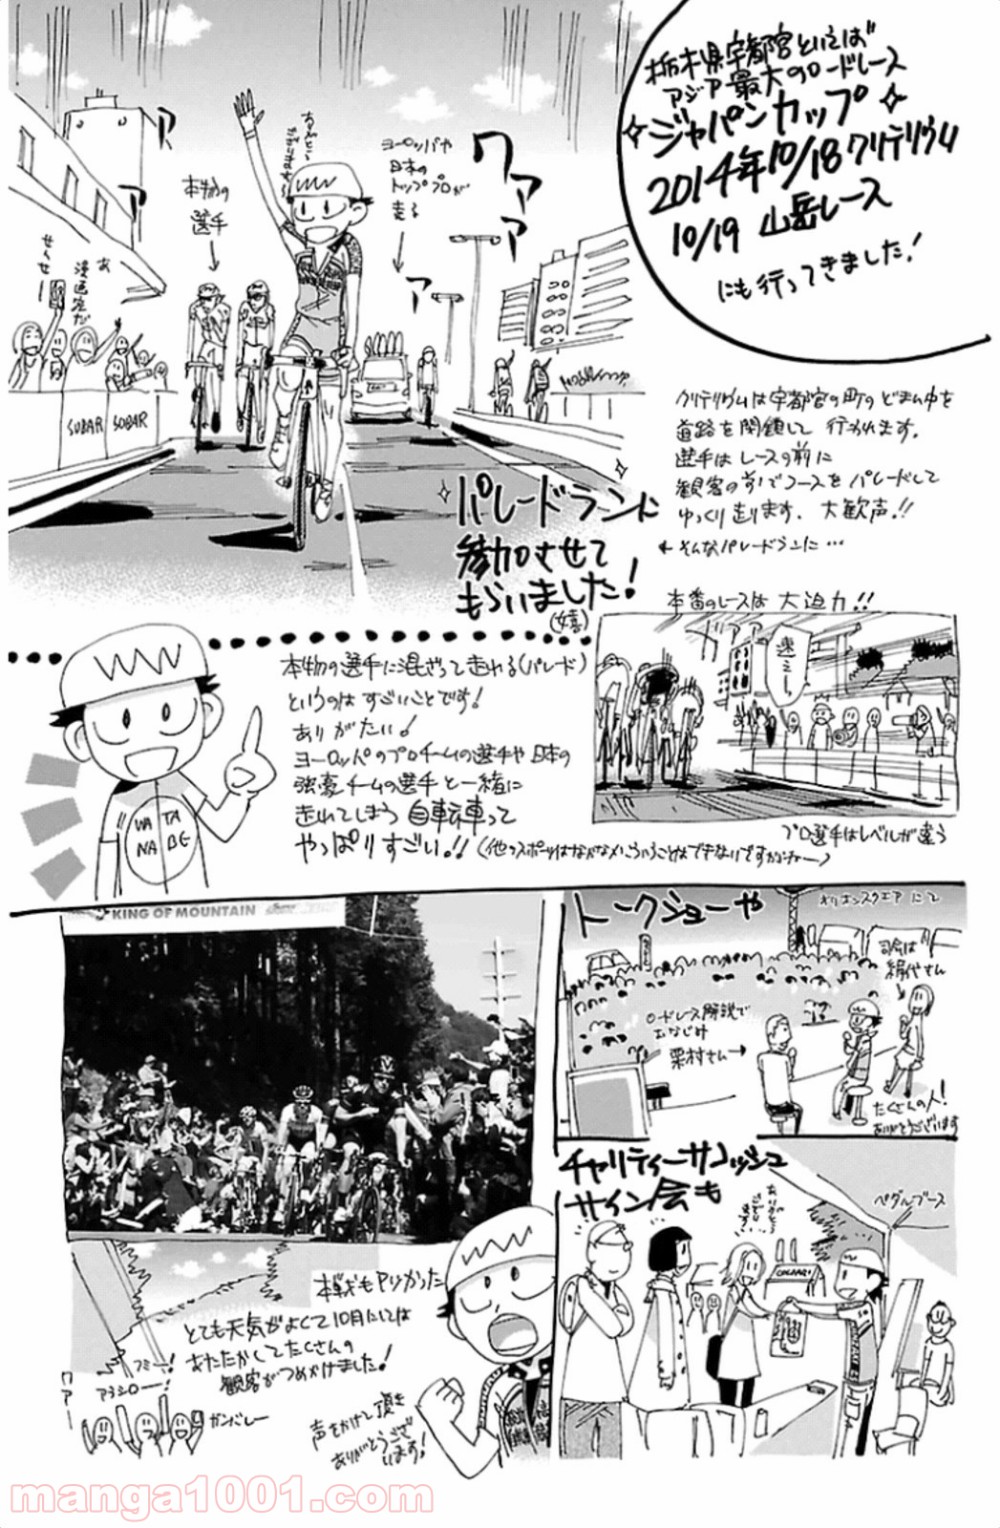 栃木県宇都宮といえば
アジア最大のロードレース
ジャパンカップ
2014年10/18クリテリウム
10/19 山岳レース
にも行ってきました!
ワァァァ
ア
ア
ア
ありがとー
ヨーロッパや
日本の
トッププロが
走る
本物の
選手
あ
漫画家だ
せーの
SUBAR SOBAR
クリテリウムは宇都宮の町のどまん中を
道路を閉鎖して行われます。
選手はレースの前に
観客の前でコースをパレードして
ゆっくり走ります。大歓声!!
←そんなパレードランに…
パレードランに
参加させて
もらいました!
(嬉)
本番のレースは大迫力!!
ドアア
速えー。
プロ選手はレベルが違う
本物の選手に混ざって走れる(パレード)
というのはすごいことです!
ありがたい!
ヨーロッパのプロチームの選手や日本の
強豪チームの選手と一緒に
走れてしまう自転車って
やっぱりすごい!!
WATA
NABE
KING OF MOUNTAIN
トークショーや
オリオンスクエアにて
司会は
絹代さん
ロードレース解説で
おなじみ
栗村さん→
たくさんの人!
ありがとうございます
チャリティーサコッシュ
サイン会も
ペダルブース
とても天気がよくて10月にしては
あたたかくてたくさんの
観客がつめかけました!
ワァー
アラシロー!
ガンバレー
声をかけて頂き
ありがとうござ
います!
manga1001.com